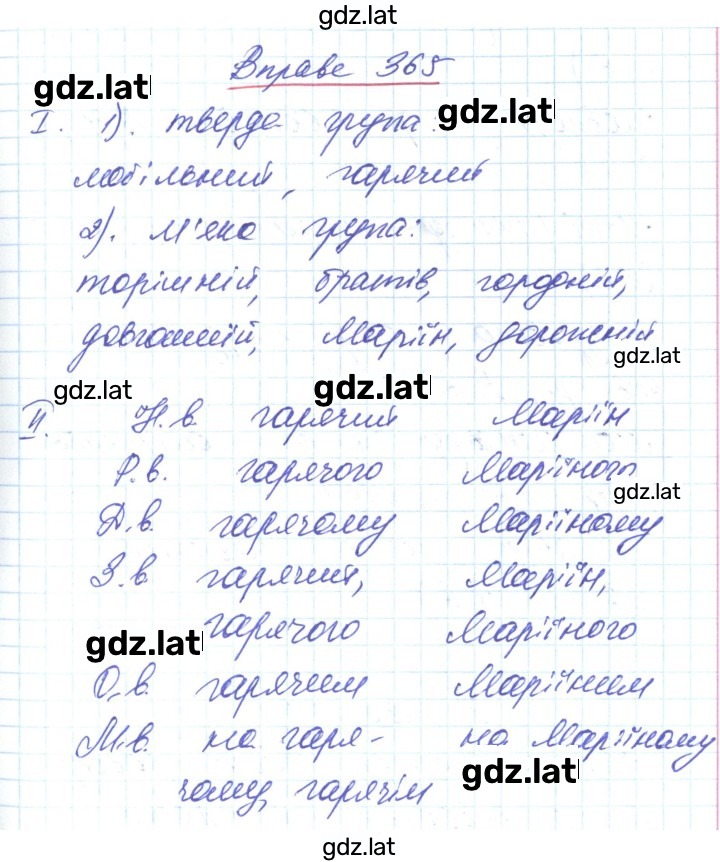 gdz.lat
Вправа 365
gdz.lat
I. 1). тверда група gdz.lat
мобільний, гарячий
2). м'яка група:
торішній, братів, городній,
довгошиїй, Маріїн, дорожній
gdz.lat
gdz.lat gdz.lat
II. Н.в. гарячий Маріїн
Р.в. гарячого Маріїного
gdz.lat
Д.в. гарячому Маріїному
З.в. гарячий, Маріїн,
гарячого Маріїного
gdz.lat
О.в. гарячим Маріїним
М.в. на гаря- на Маріїному
чому, гарячім gdz.lat
gdz.lat